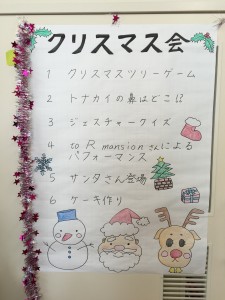 クリスマス会
1 クリスマスツリーゲーム
2 トナカイの鼻はどこ!?
3 ジェスチャークイズ
4 to R mansionさんによる
パフォーマンス
5 サンタさん登場
6 ケーキ作り